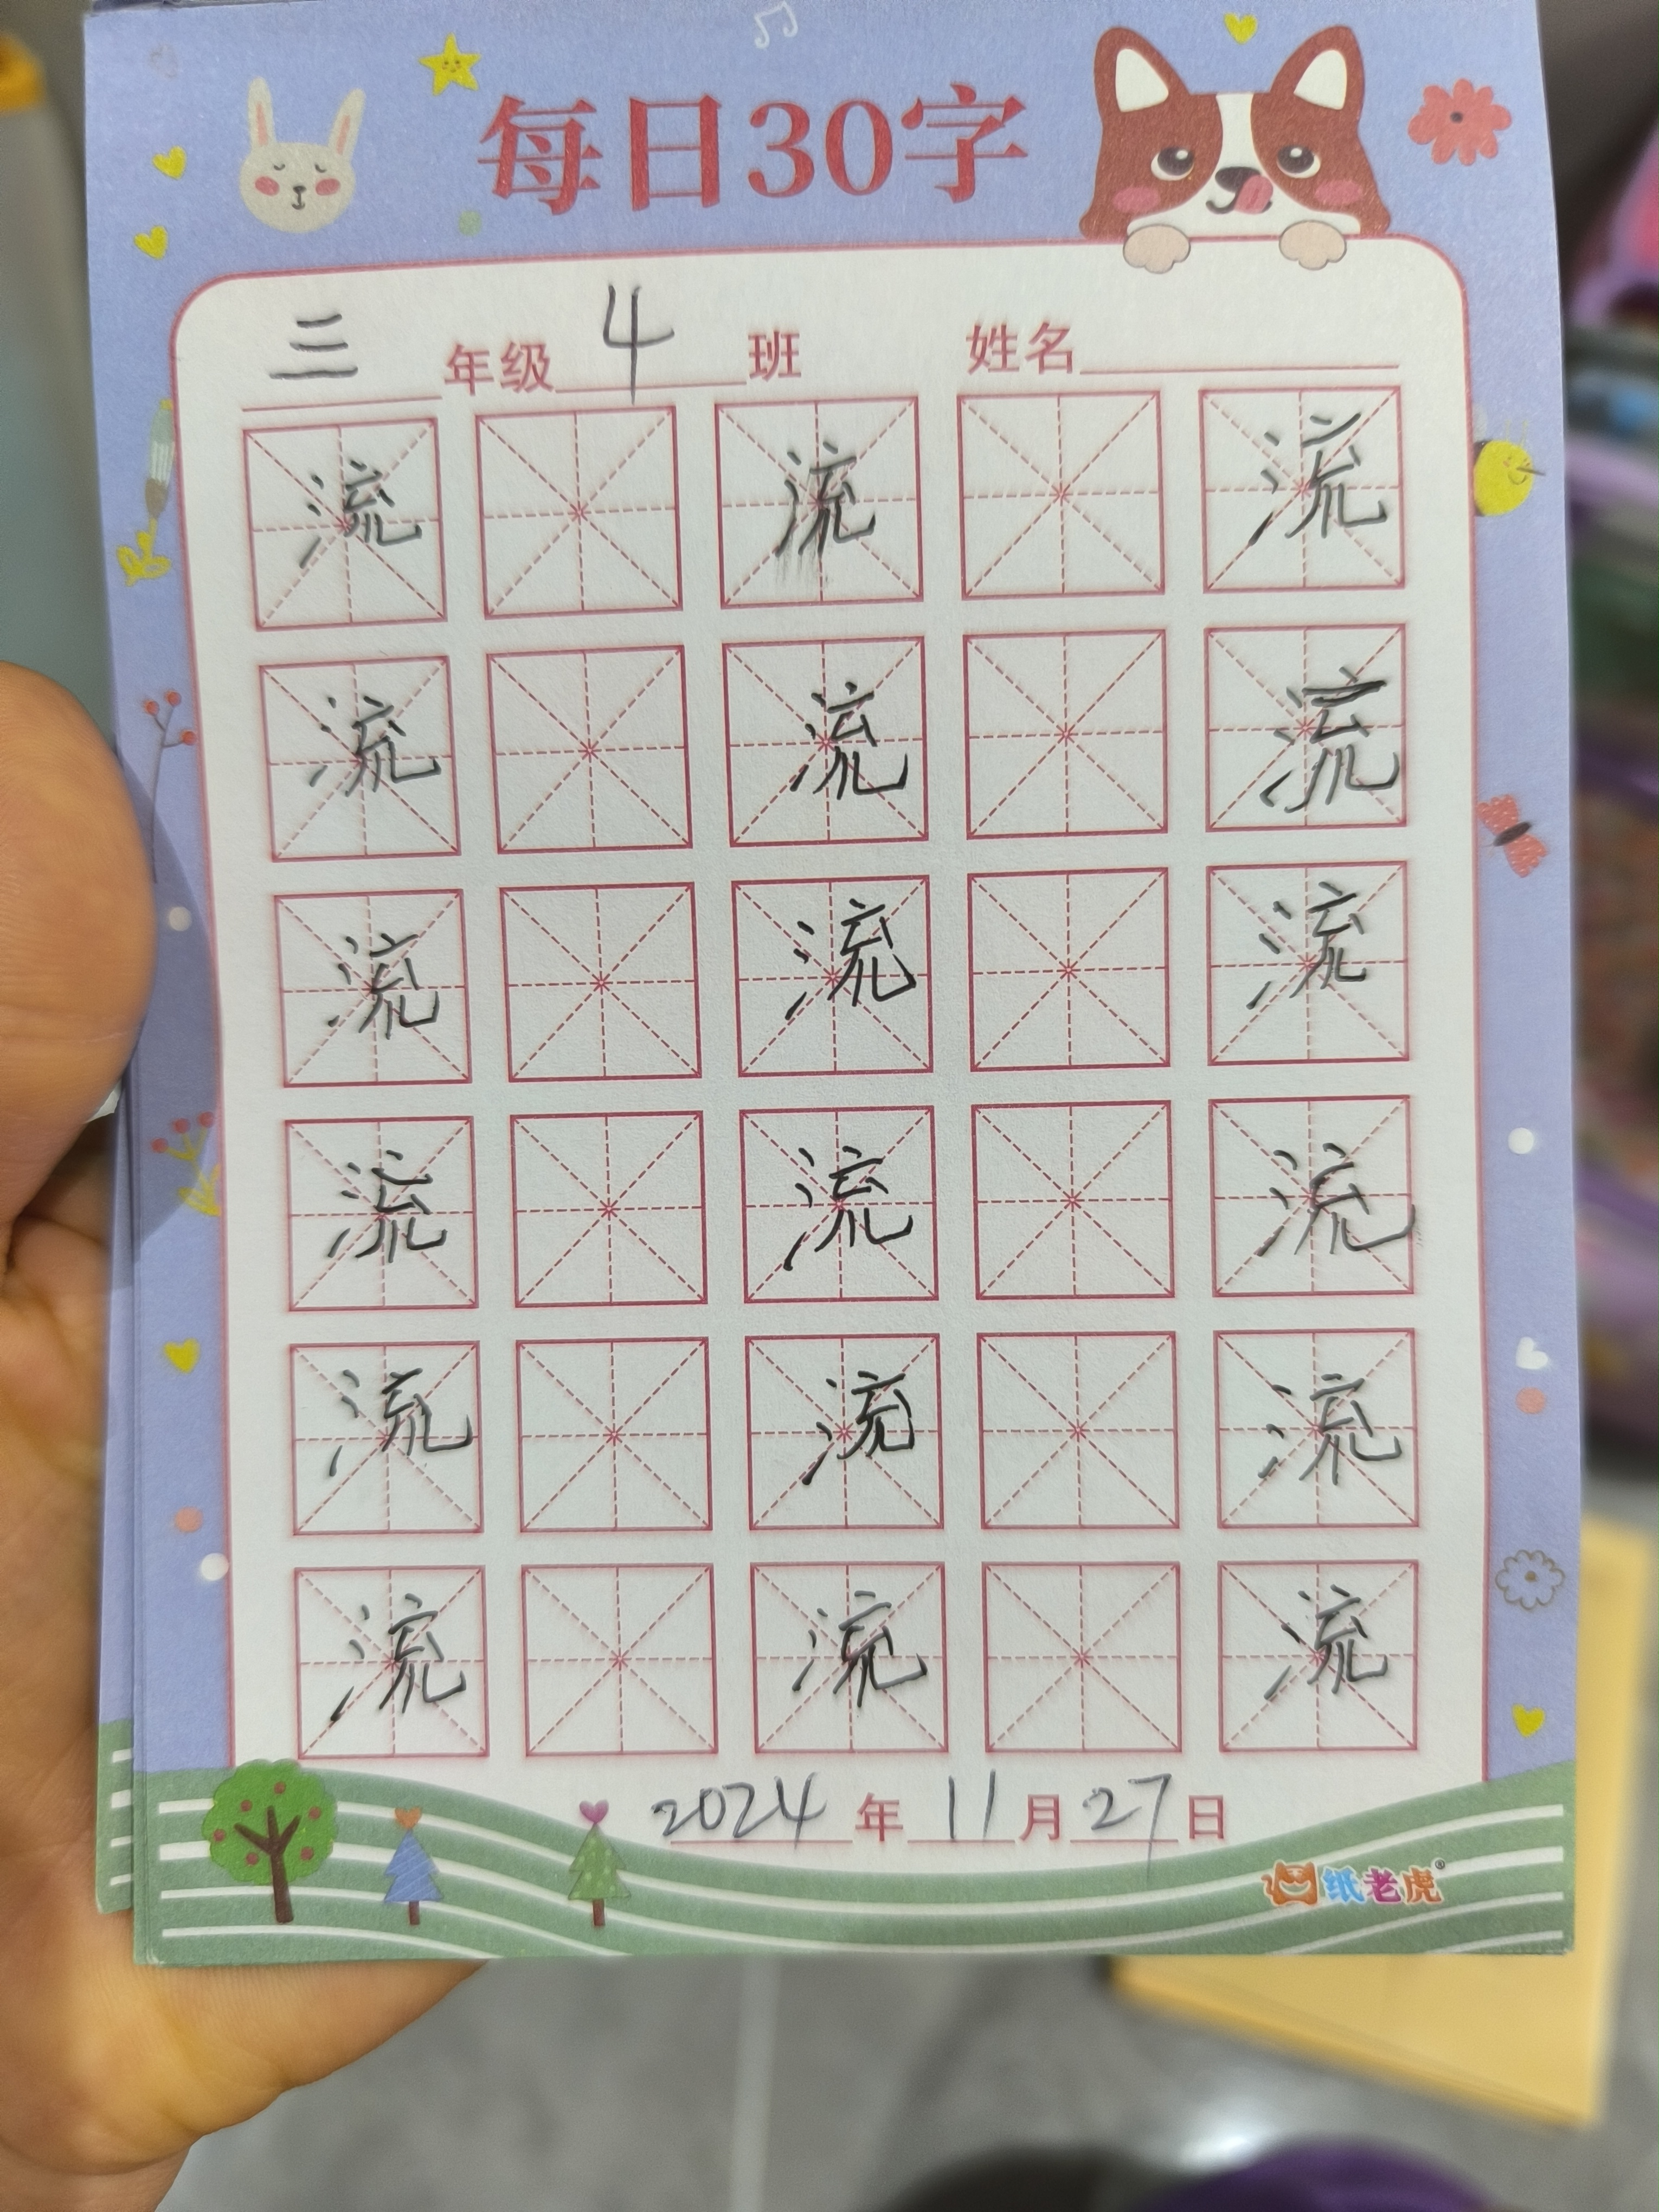 每日30字
三年级4班 姓名
流 流 流
流 流 流
流 流 流
流 流 流
流 流 流
流 流 流
2024年11月27日
纸老虎®